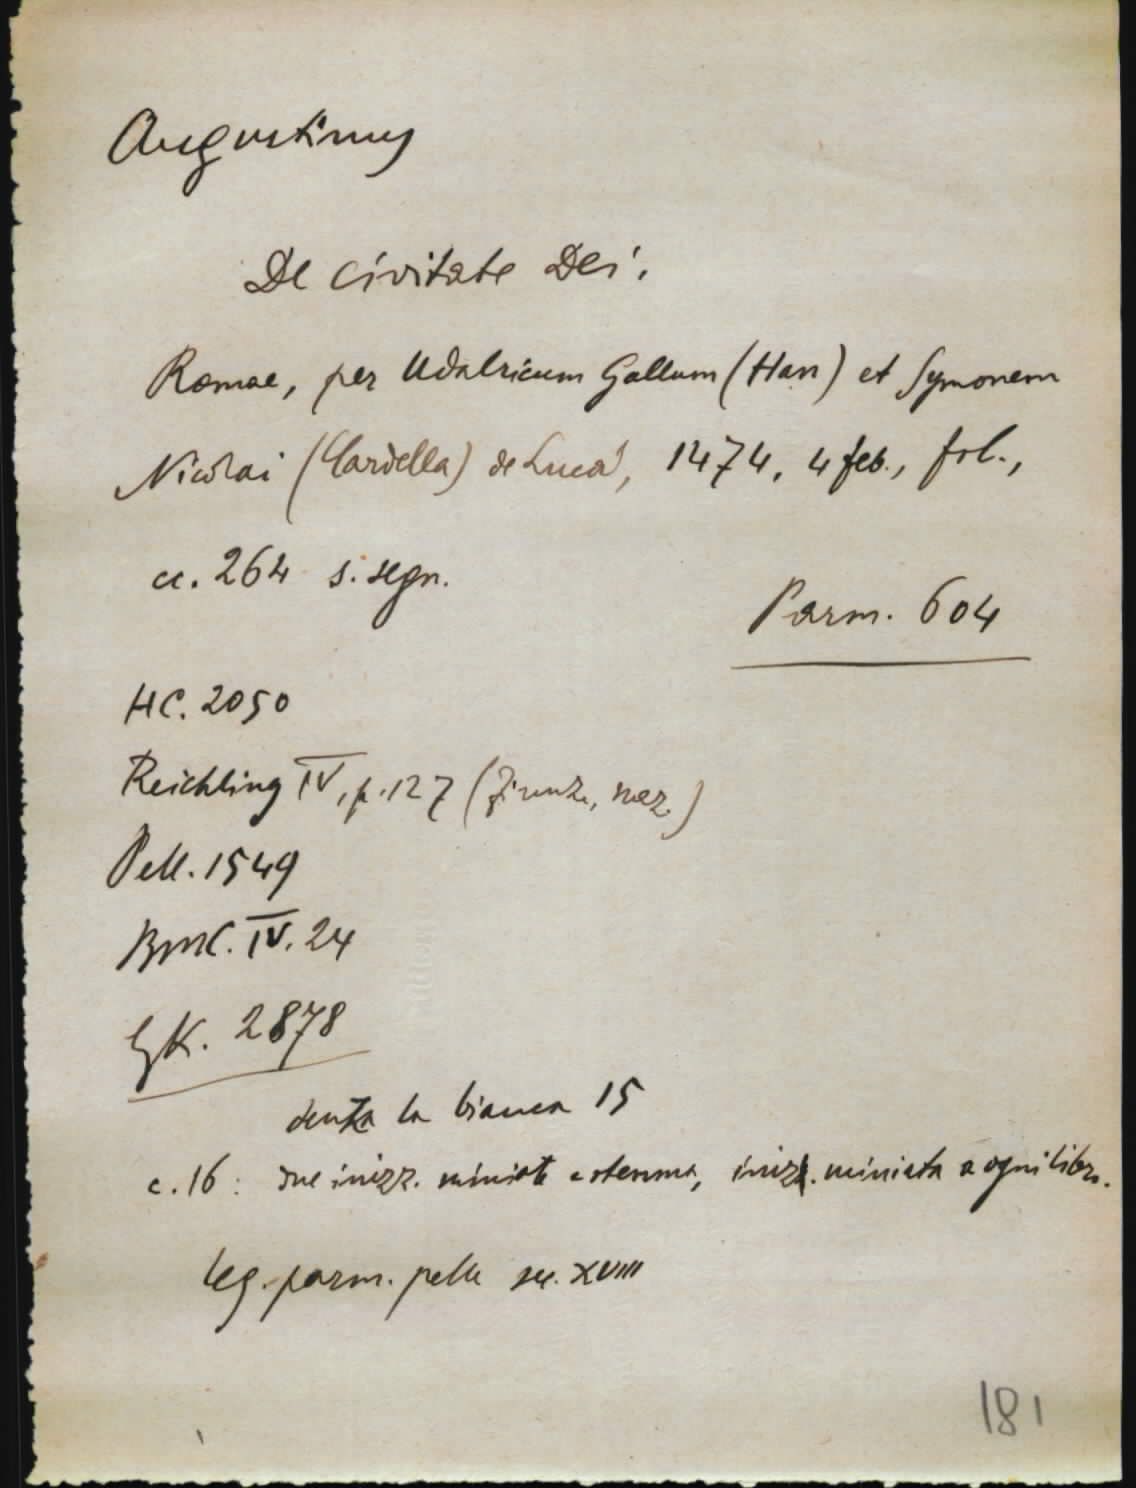 Augustinus
De civitate Dei.
Romae, per Udalricum Gallum (Han) et Symonem
Nicolai (Cardella) de Luca, 1474, 4 feb., fol.,
cc. 264 s. segn.
Parm. 604
HC. 2050
Reichling IV, p. 127 (Firenze, naz.)
Pell. 1549
BMC. IV. 24
GK. 2878
senza la bianca 15
c. 16: due inizz. miniate e stemma, iniz. miniata a ogni libro.
leg. parm. pelle sec. XVIII
181